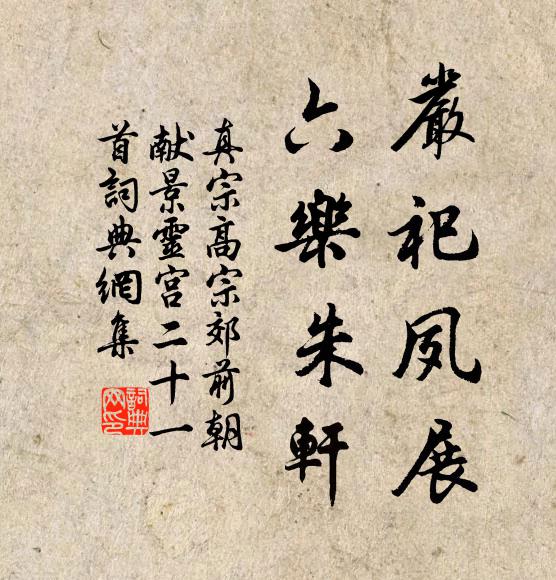 嚴祀夙展
六樂朱軒
真宗高宗郊前朝
献景靈宮二十一
首詞典網集
詞典
网印